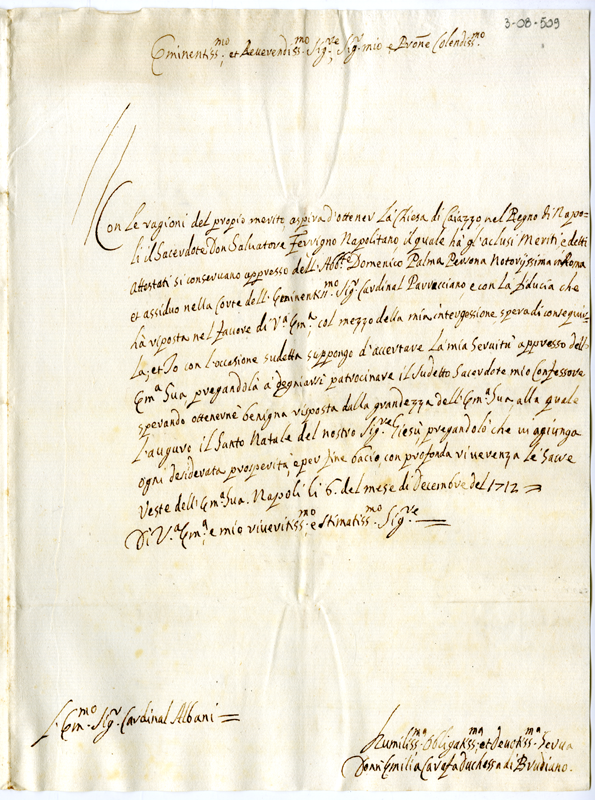 3-08-509
Eminentiss.mo, et Reverendiss.mo Sig.re, Sig.r mio e Prone Colendiss.mo
Con le ragioni del proprio merito, aspira d'ottener la Chiesa di Caiazzo nel Regno di Napo-
li il Sacerdote Don Salvatore Ferrigno Napolitano il quale hà gl'aclusi Meriti, e detti
attestati si conservano appresso dell'Abb.e Domenico Palma Persona Notorissima in Roma
et assiduo nella Corte dell'Eminentiss.mo Sig.r Cardinal Parracciano, e con la fiducia che
hà riposta nel favore di V.a Em.a col mezzo della mia intercessione spera di conseguir-
la, et Io con l'occasione sudetta suppongo d'accertare la mia Servitù appresso dell'
Em.a Sua pregandola à degniarsi patrocinare il sudetto Sacerdote mio Confessore
sperando ottenerne benigna risposta dalla grandezza dell'Em.a Sua, alla quale
l'auguro il Santo Natale del nostro Sig.re Giesù, pregandolo che vi agiunga
ogni desiderata prosperità, e per fine bacio, con profonda riverenza le Sacre
Veste dell'Em.a Sua. Napoli li 6. del mese di Decembre del 1712 =
Di V.a Em.a, e mio riveritiss.mo, e stimatiss.mo Sig.re =
Em.mo Sig.r Cardinal Albani =
Humiliss.ma Obligatiss.ma, et Devotiss.ma Serva
Donn'Emilia Carafa Duchessa di Bruziano.